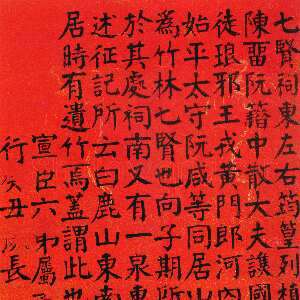 七賢祠東左右筠篁列植
陳畱阮籍中散大夫護國
徒琅邪王戎黃門郎河內
始平太守阮咸等同居山
爲竹林七賢也向子期所
於其處祠南又有一泉東
述征記所云白鹿山東南
居時有遺竹焉蓋謂此也
宣臣六弟屬
行癸丑長